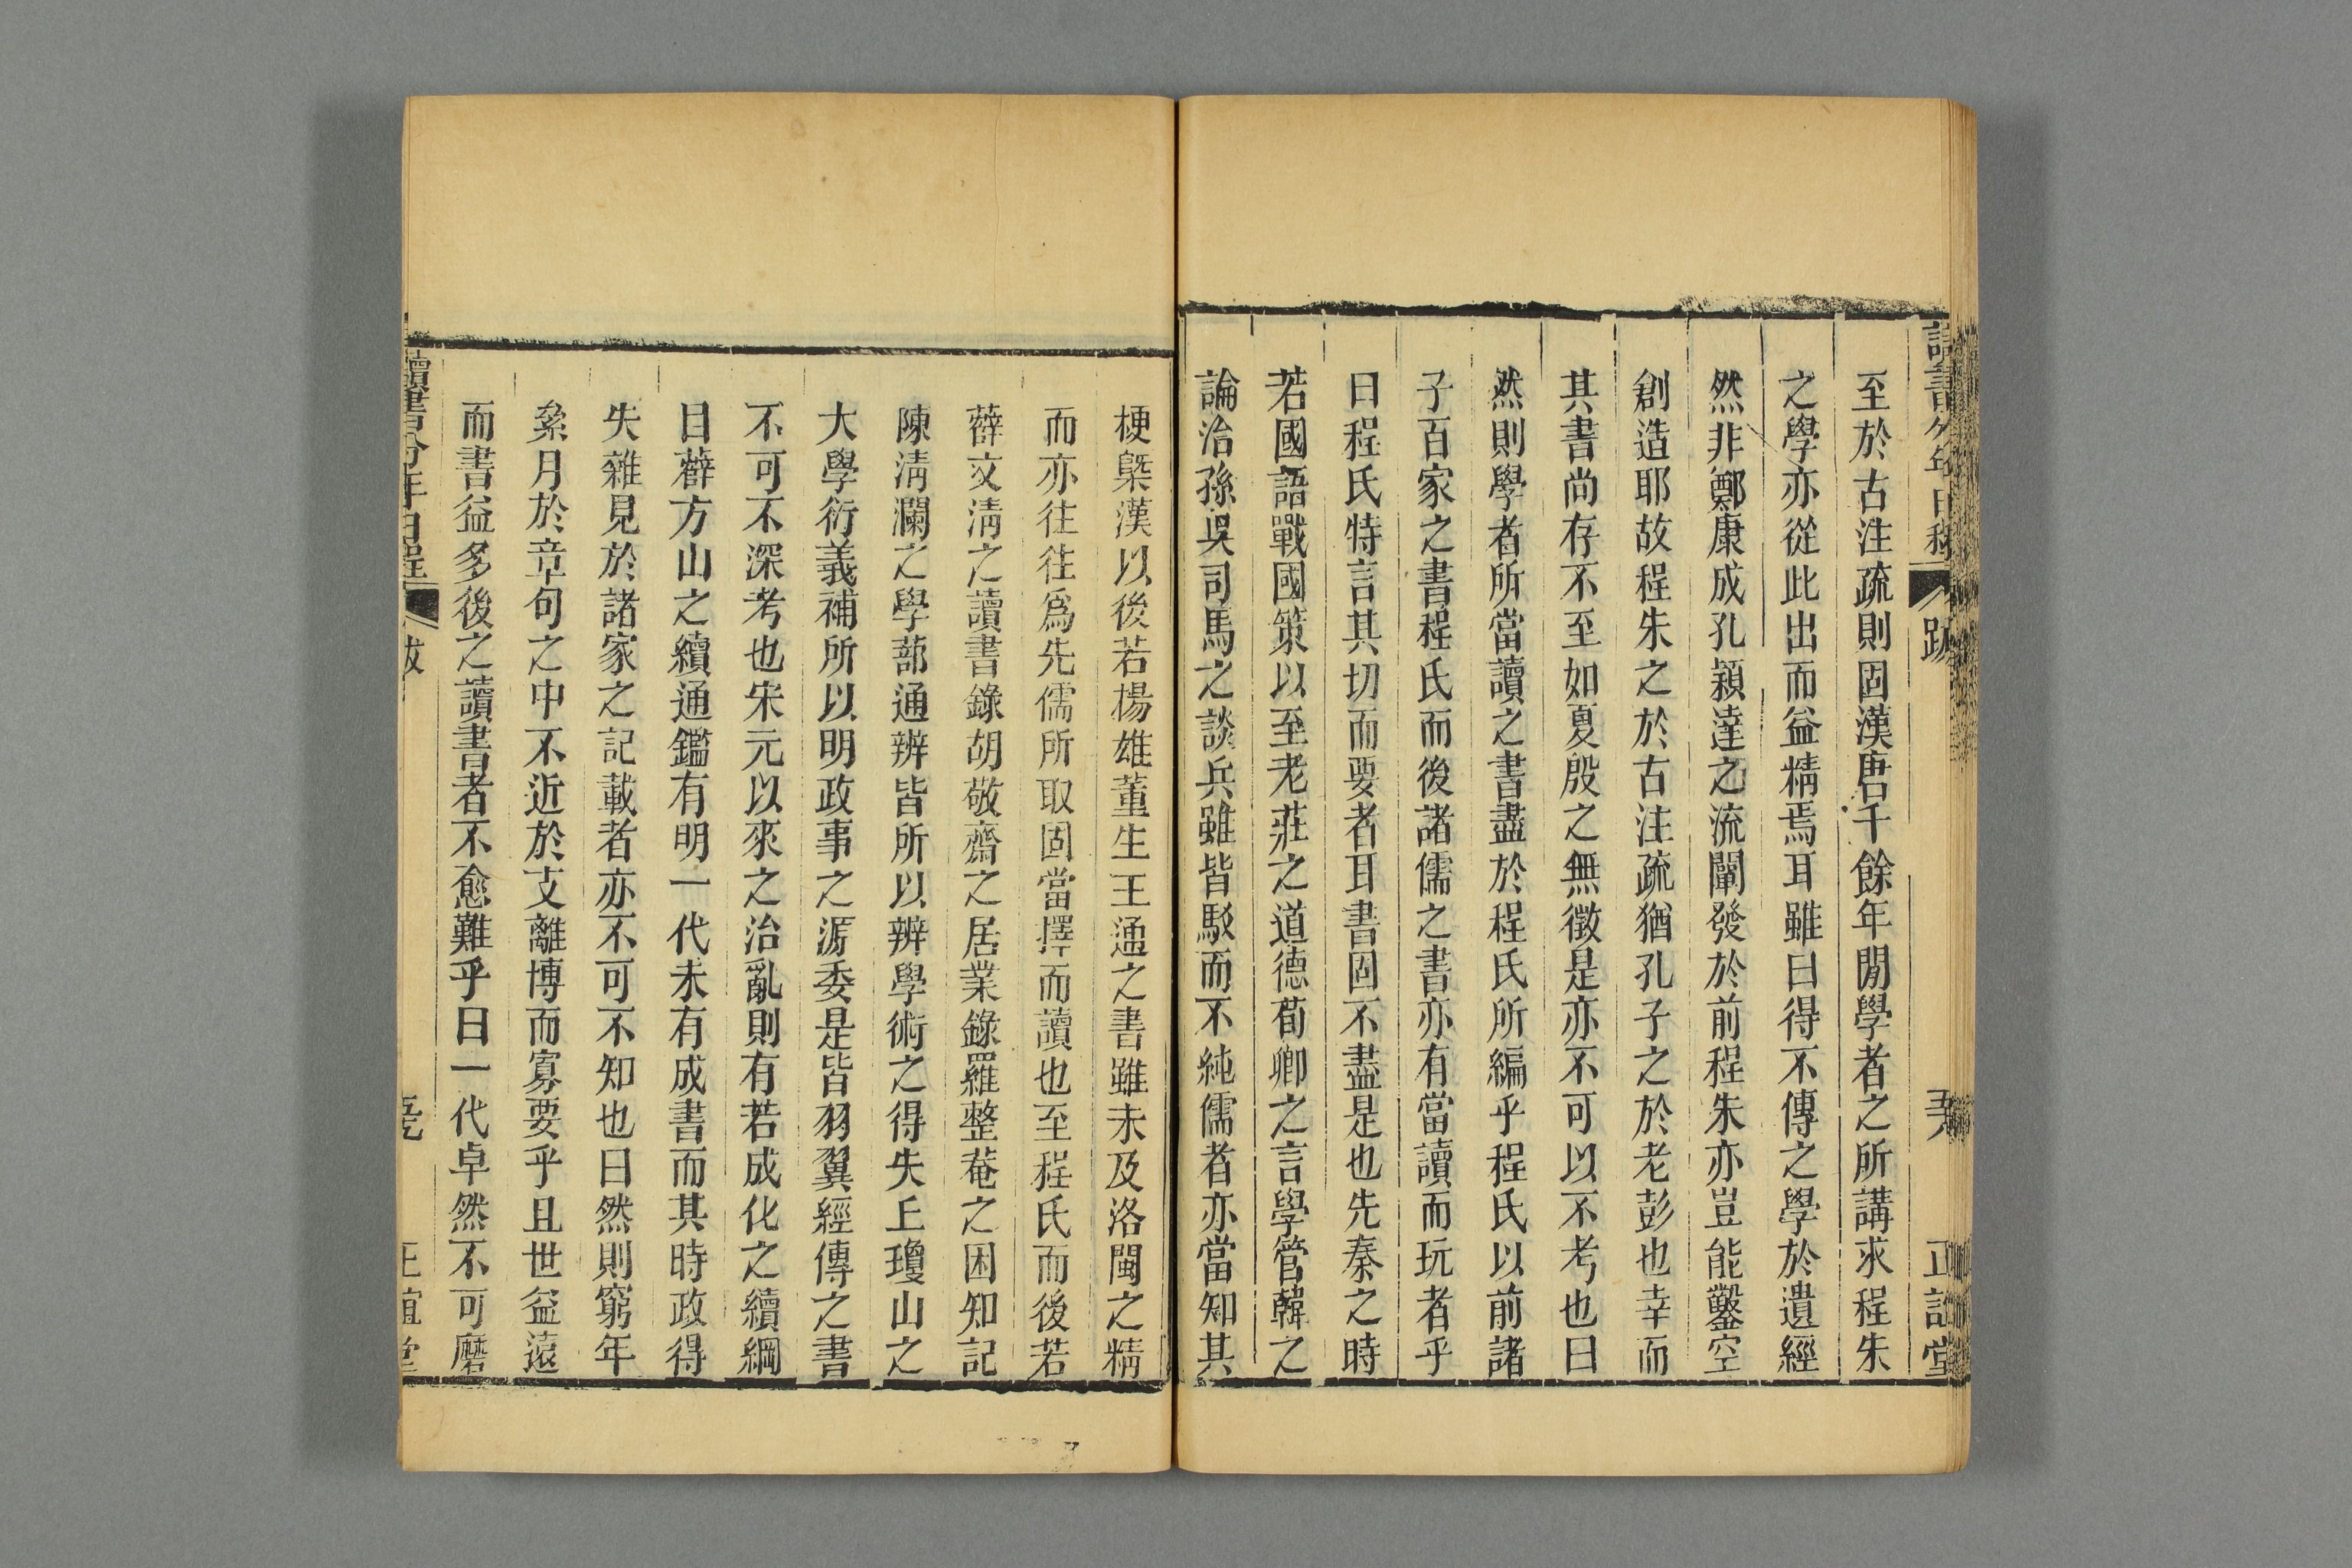 至於古注疏則固漢唐千餘年閒學者之所講求程朱
之學亦從此出而益精焉耳雖曰得不傳之學於遺經
然非鄭康成孔穎達之流闡發於前程朱亦豈能鑿空
創造耶故程朱之於古注疏猶孔子之於老彭也幸而
其書尚存不至如夏殷之無徵是亦不可以不考也曰
然則學者所當讀之書盡於程氏所編乎程氏以前諸
子百家之書程氏而後諸儒之書亦有當讀而玩者乎
曰程氏特言其切而要者耳書固不盡是也先秦之時
若國語戰國策以至老莊之道德荀卿之言學管韓之
論治孫吳司馬之談兵雖皆駁而不純儒者亦當知其
梗槩漢以後若揚雄董生王通之書雖未及洛閩之精
而亦往往爲先儒所取固當擇而讀也至程氏而後若
薛文淸之讀書錄胡敬齋之居業錄羅整菴之困知記
陳淸瀾之學蔀通辨皆所以辨學術之得失丘瓊山之
大學衍義補所以明政事之源委是皆羽翼經傳之書
不可不深考也宋元以來之治亂則有若成化之續綱
目薛方山之續通鑑有明一代未有成書而其時政得
失雜見於諸家之記載者亦不可不知也曰然則窮年
絫月於章句之中不近於支離博而寡要乎且世益遠
而書益多後之讀書者不愈難乎曰一代卓然不可磨
讀書分年日程
跋
正誼堂